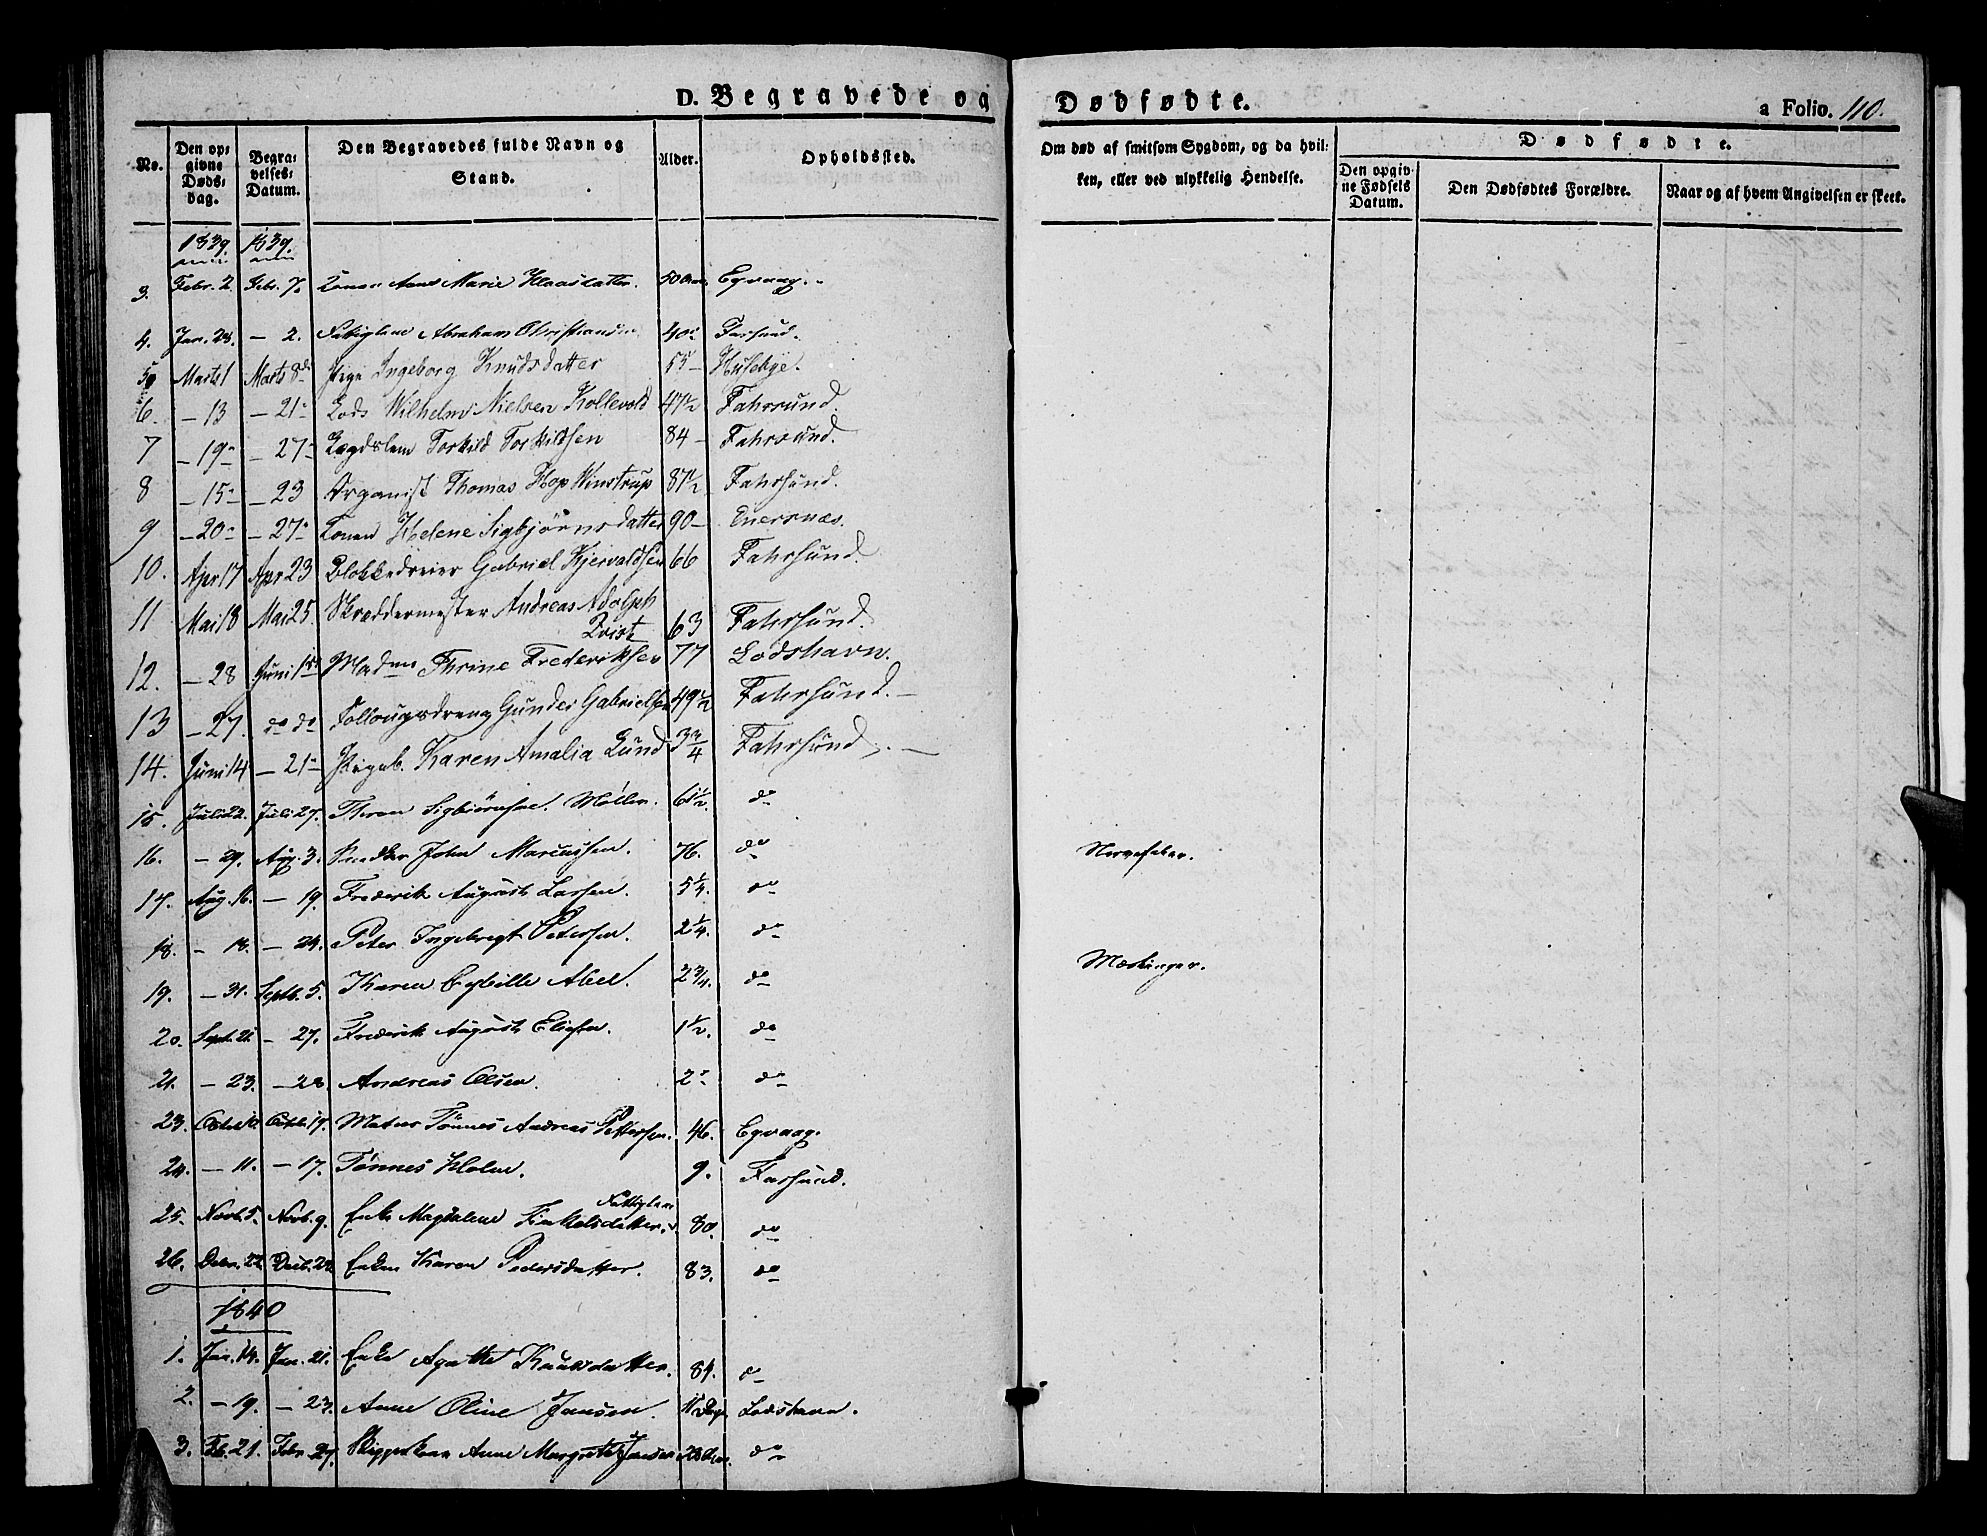 D. Begravede og Dødfødte. a Folio. 110.
No. Den opgivne Dødsdag. Begravelses Datum. Den Begravedes fulde Navn og Stand. Alder. Opholdssted. Om død af smitsom Sygdom, og da hvilken, eller ved ulykkelig Hendelse. Dødfødte. Den opgivne Fødsels Datum. Den Dødfødtes Forældre. Naar og af hvem Angivelsen er skeet.
1839. 1839.
3. Febr. 2. Febr. 7. Konen Anne Marie Klausdatter. 50 Egvaag.
4. Jan. 28. — 2. Fattiglem Abraham Christiansen 40 Farsund.
5 Marts 1 Marts 8 Pige Ingeborg Knudsdatter Husebye.
6. — 13 — 21 Lods Wilhelm Nielsen Kollevold 47½ Fahrsund.
7 — 19 — 27 Lægdslem Torkild Torkildsen 84 — Fahrsund.
8 — 15 — 23 Organist Thomas Hop Winstrup 87½ Fahrsund.
9 — 20 — 27 Konen Helene Sigbjørnsdatter 90 — Enersnæs.
10. Apr 17 Apr 23 Blokkedreier Gabriel Kjervaldsen 66 Fahrsund
11 Mai 18 Mai 25. Skreddermester Andreas Adolph
Qvist 63 Fahrsund.
12. — 28 Juni 1 Mad Thrine Frederiksen 77 Lodshavn.
13 — 27. do do Gunder Gabrielsen 49½ Fahrsund. —
14. Juni 14 — 21 Pigeb. Karen Amalia Lund 3¾ Fahrsund. —
15. Juli 22. Juli 27. Sigbiørnsen Møller. 61½. do
16. — 29. Aug. 3. John Marcussen. 76. do Nervefeber.
17. Aug. 16. — 19. Frederik August Larsen. 5¼. do
18. — 18. — 24. Peter Ingebregt Petersen. 2¼. do
19. — 31. Septb. 5. Karen Cybille Abel. 2¾. do Mæslinger.
20. Sept. 21. — 27. Frederik August Eliesen. 1½. do
21. — 23. — 28. Andreas Olsen. 2 do
23. Octob. Octob. 19. Matros Tønnes Andreas Pettersen. 46. Egvaag.
24. — 11. — 17. Tønnes Holm. 9. Farsund.
25. Novb. 5. Novb. 9. Enke Magdalene Fattiglem 80. do
26. Decbr. 22. Decb. Enken Karen Pedersdatter. 83. do
1840
1. Jan. 14. Jan. 21. Enke Agathe Knudsdatter. 84. do
2. — 19. — 23. Anne Oline Jansen. Lodshavn.
3. Fb. 21. Febr. 27. Anne Margrethe Jansen do